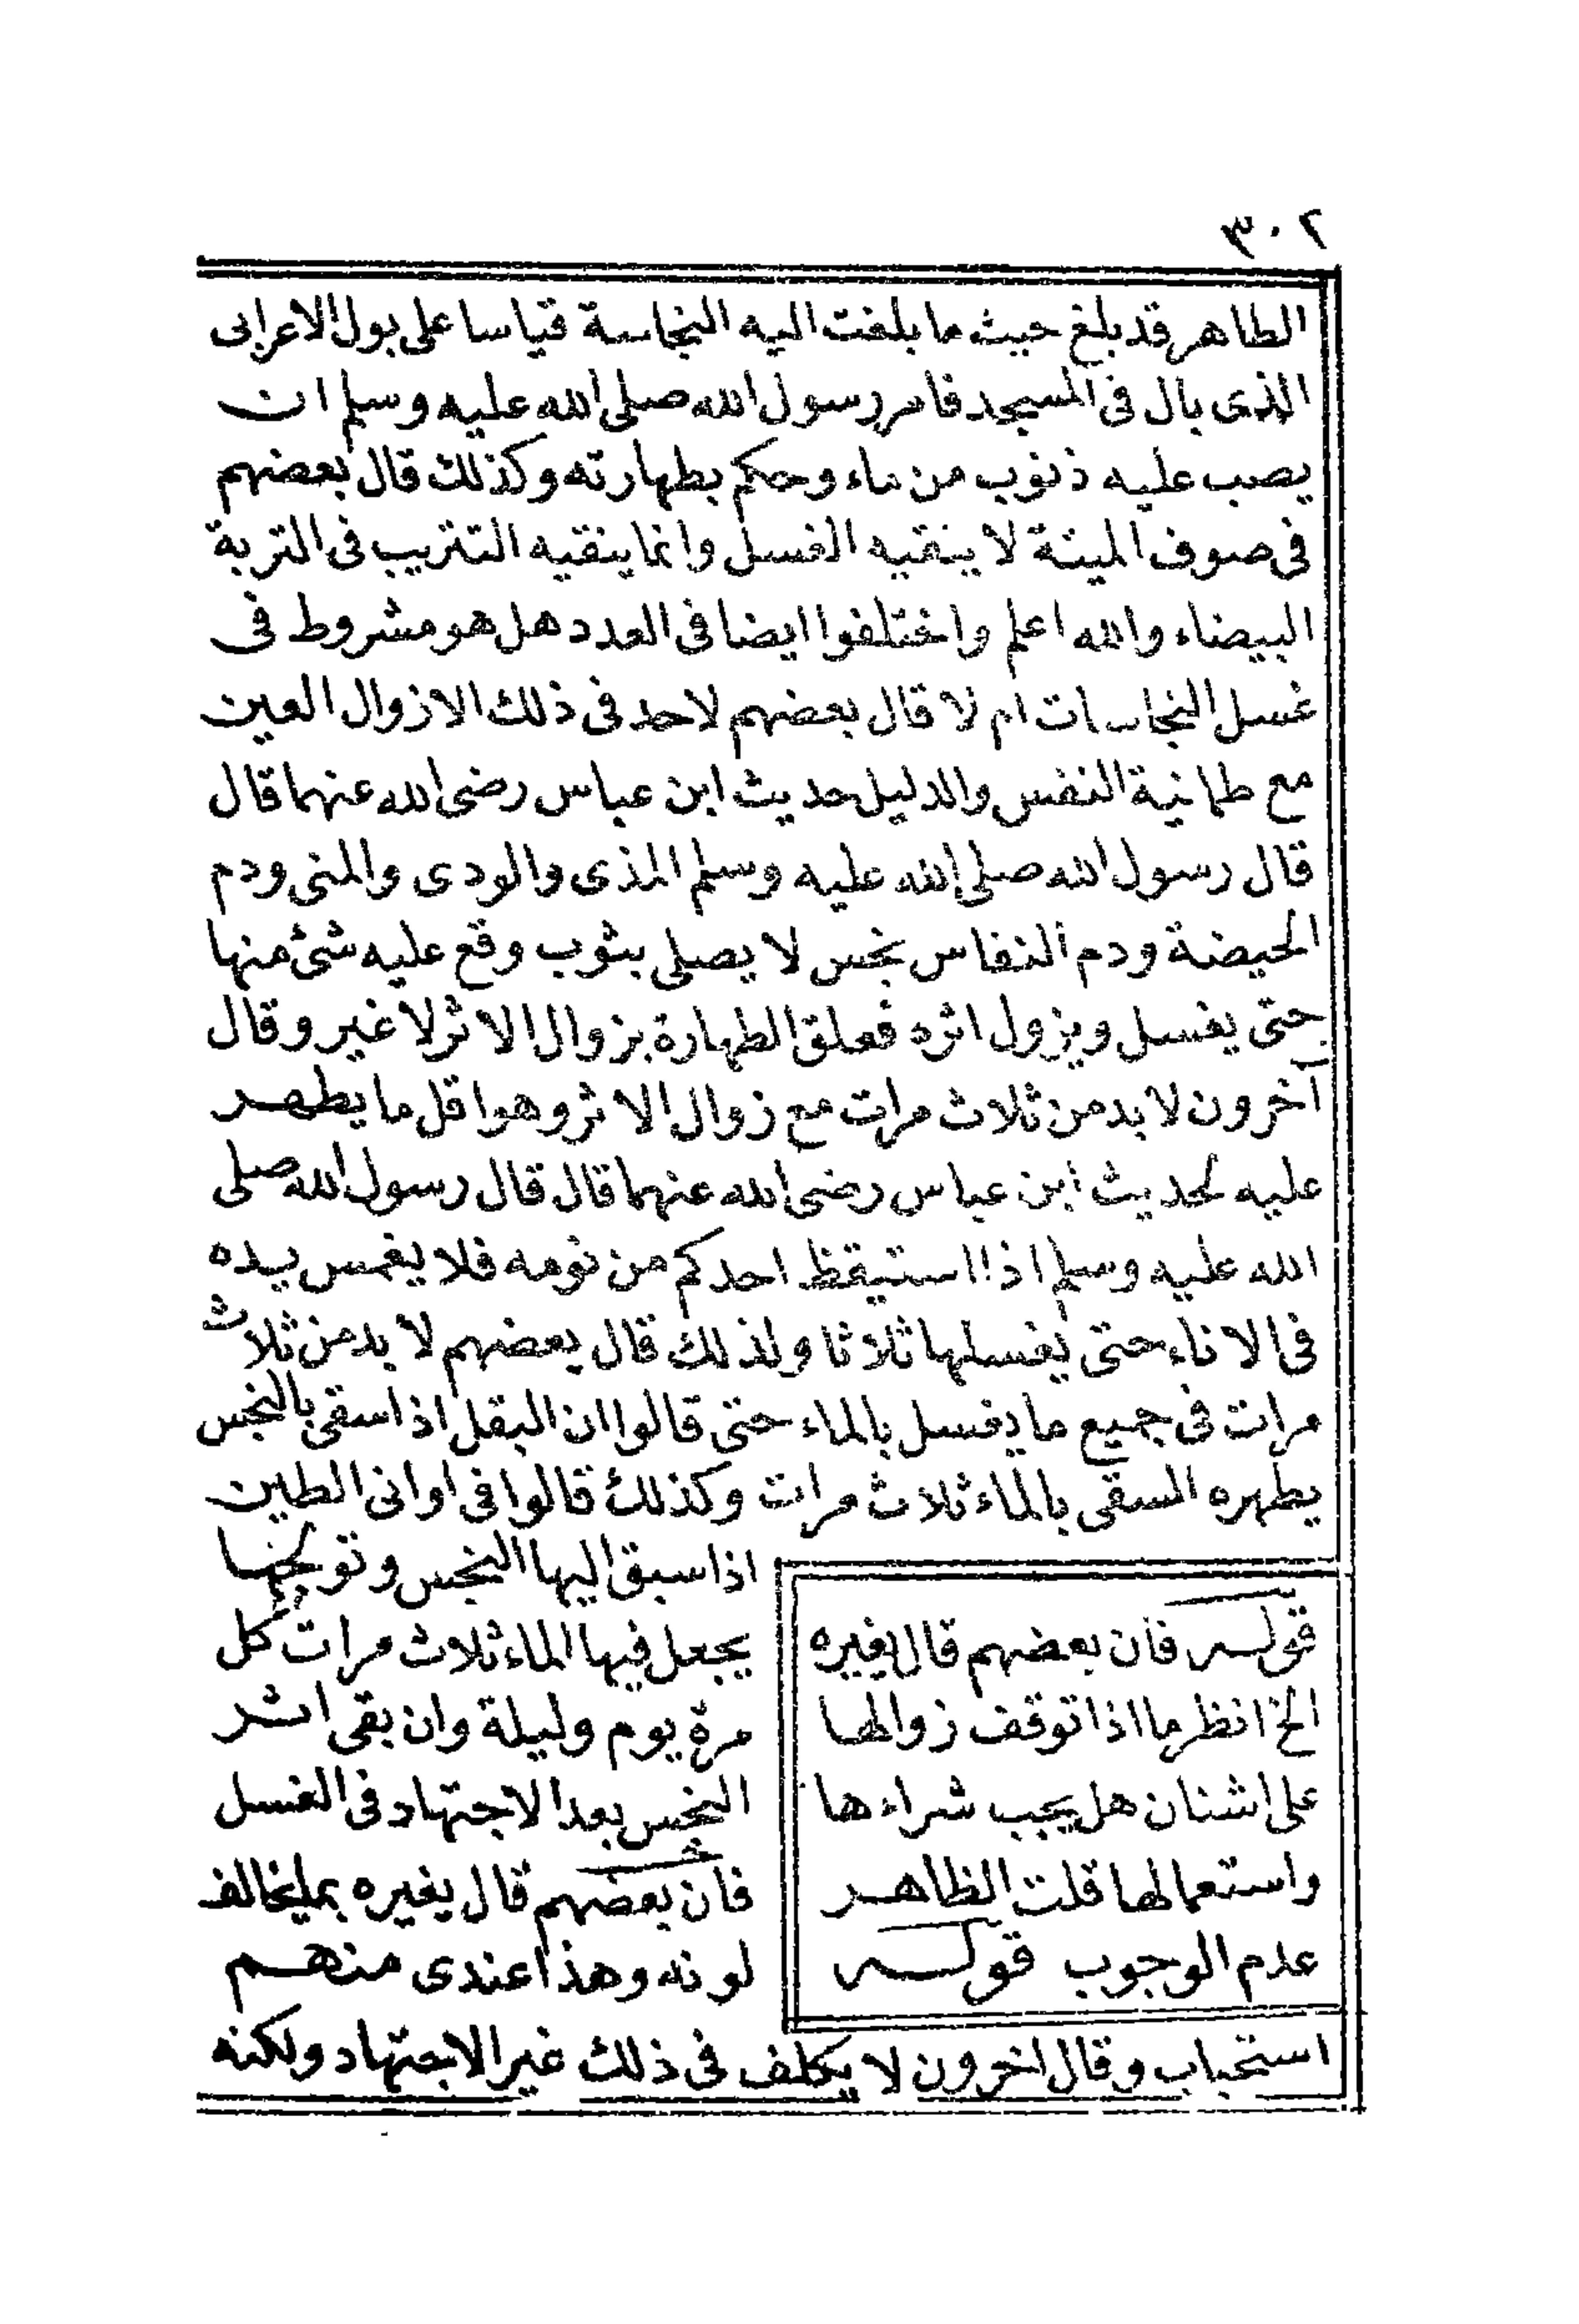 ٣٠٢
الطاهر قد بلغ حيث ما بلغت اليه النجاسة قياسا على بول الاعرابى
الذى بال فى المسجد فامر رسول الله صلى الله عليه وسلم ان
يصب عليه ذنوب من ماء وحكم بطهارته وكذلك قال بعضهم
فى صوف الميتة لا ينقيه الغسل وانما ينقيه التتريب فى التربة
البيضاء والله اعلم واختلفوا ايضا فى العدد هل هو مشروط فى
غسل النجاسات ام لا قال بعضهم لاحد فى ذلك الا زوال العين
مع طمانية النفس والدليل حديث ابن عباس رضى الله عنهما قال
قال رسول الله صلى الله عليه وسلم المذى والودى والمنى ودم
الحيضة ودم النفاس نجس لا يصلى بثوب وقع عليه شئ منها
حتى يغسل ويزول اثره فعلق الطهارة بزوال الاثر لا غير وقال
آخرون لا بد من ثلاث مرات مع زوال الاثر وهو اقل ما يطهر
عليه لحديث ابن عباس رضى الله عنهما قال قال رسول الله صلى
الله عليه وسلم اذا استيقظ احدكم من نومه فلا يغمس يده
فى الاناء حتى يغسلها ثلاثا ولذلك قال بعضهم لا بد من ثلاث
مرات فى جميع ما يغسل بالماء حتى قالوا ان البقل اذا سقى بالنجس
يطهره السقى بالماء ثلاث مرات وكذلك قالوا فى اوانى الطين
اذا سبق اليها النجس وتولجها
يجعل فيها الماء ثلاث مرات كل
مرة يوم وليلة وان بقى اثر
النجس بعد الاجتهاد فى الغسل
فان بعضهم قال يغيره بما يخالف
لونه وهذا عندى منهم
استحباب وقال اخرون لا يكلف فى ذلك غير الاجتهاد ولكنه
قوله فان بعضهم قال يغيره
الخ انظر ما اذا توقف زوالها
على اشنان هل يجب شراءها
واستعمالها قلت الظاهر
عدم الوجوب قوله